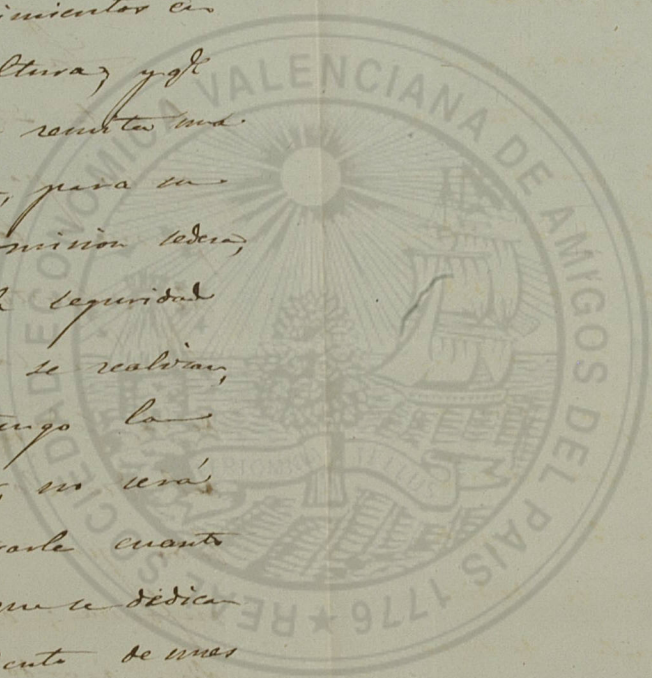 imientos en
ltura, y qe
remita una
para su
mision sedera,
seguridad
se realizan,
engo la
no será
arle cuanto
que se dedica
ento de unes
REAL SOCIEDAD ECONOMICA VALENCIANA DE AMIGOS DEL PAIS 1776